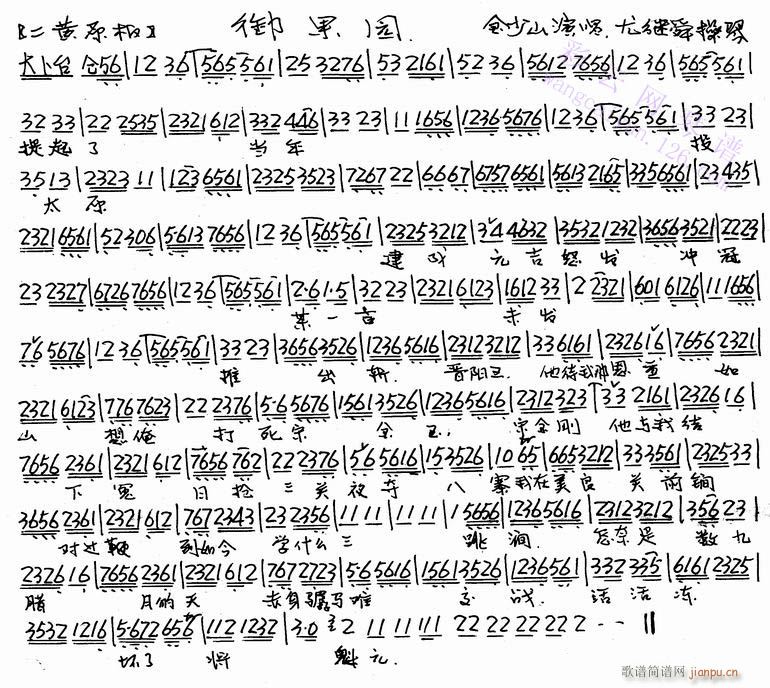 【二黄原板】 御果园 金少山演唱 尤继舜操琴
大卜台 仓56|12 36|565561|25 3276|532161|52 36|5612 7656|12 36|565561|
32 33|22 2535|2321 612|332 446|33 23|11 1656|12365676|12 36|565561|33 23|
提起了 当年 投
3513|2323 11|1236561|23253523|7267 22|6667|67576561|5613 2165|3356561|23 435|
太原
2321 6561|52306|5613 7656|12 36|565561|23253212|344632|3532 1232|36563521|2223|
建成元吉怒发冲冠
23 2327|67267656|12 36|565561|2·61·5|32 23|2321 6123|1612 33|2 2321|601 6126|11 1656|
某一言未发
76 5676|12 36|565561|33 23|36563526|12365616|23123212|33 6161|232616|7656 2321|
推出斩 晋阳王 他待我那恩重如
2321 6123|7767623|22 2376|5·65676|15613526|12365616|2312323|33 2161|2326 16|
山 想俺打死宗金玉 宋金刚他与我结
7656 2361|2321 612|7656 762|22 2376|565616|153526|1065|6653212|3356561|232533|
下冤 日抢三关夜夺八寨 我在美良关前锏
3656 2361|2321 612|767 2343|23 2356|11 11|11 11|15656|12365616|23123212|356 23|
对过鞭 到如今 学什么三跳涧 怎奈是数九
2326 16|7656 2361|2321 612|767 2723|565616|15613526|1236561|332 335|6161 2325|
腊月的天 赤身骣马难交战 活活冻
3532 1216|5·672656|112 1232|3·0 2 11 11 11 22 22 22 22 2 - - ‖
坏了将魁元.
歌谱简谱网
jianpu.cn